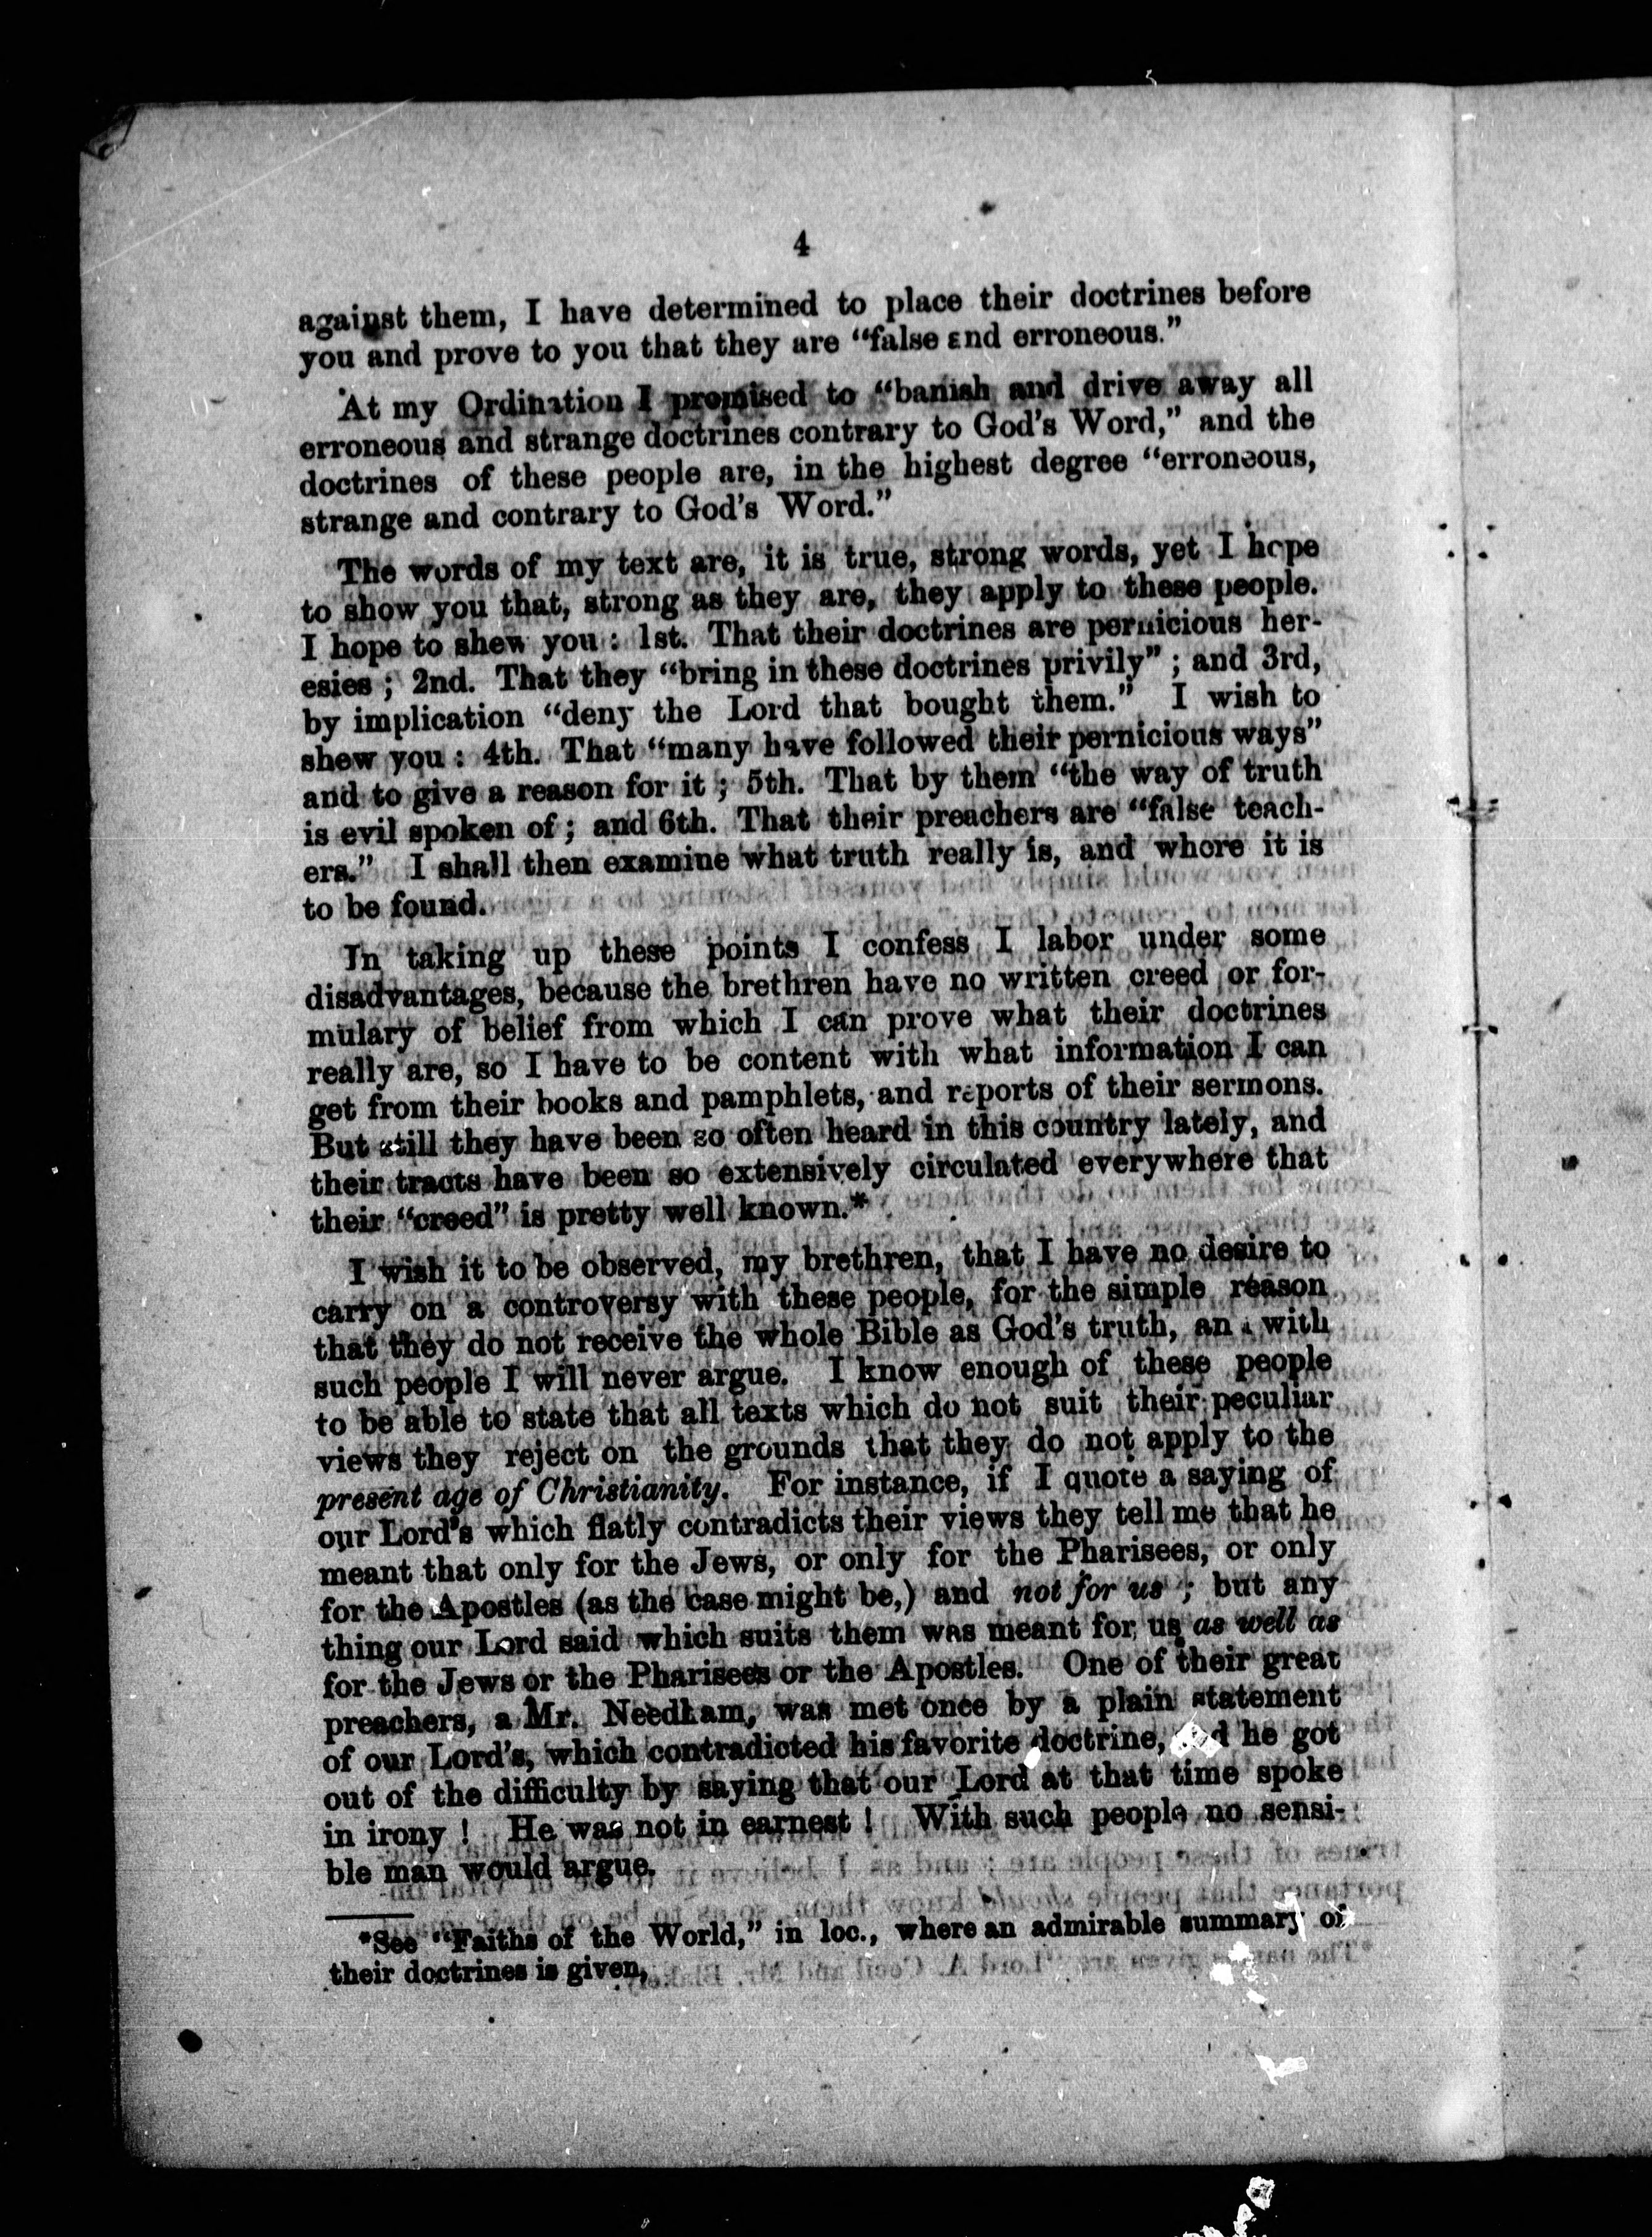 4
against them, I have determined to place their doctrines before
you and prove to you that they are "false and erroneous."
At my Ordination I promised to "banish and drive away all
erroneous and strange doctrines contrary to God's Word," and the
doctrines of these people are, in the highest degree "erroneous,
strange and contrary to God's Word."
The words of my text are, it is true, strong words, yet I hope
to show you that, strong as they are, they apply to these people.
I hope to shew you : 1st. That their doctrines are pernicious her-
esies ; 2nd. That they "bring in these doctrines privily" ; and 3rd,
by implication "deny the Lord that bought them." I wish to
shew you : 4th. That "many have followed their pernicious ways"
and to give a reason for it ; 5th. That by them "the way of truth
is evil spoken of ; and 6th. That their preachers are "false teach-
ers." I shall then examine what truth really is, and where it is
to be found.
In taking up these points I confess I labor under some
disadvantages, because the brethren have no written creed or for-
mulary of belief from which I can prove what their doctrines
really are, so I have to be content with what information I can
get from their books and pamphlets, and reports of their sermons.
But still they have been so often heard in this country lately, and
their tracts have been so extensively circulated everywhere that
their "creed" is pretty well known.*
I wish it to be observed, my brethren, that I have no desire to
carry on a controversy with these people, for the simple reason
that they do not receive the whole Bible as God's truth, and with
such people I will never argue. I know enough of these people
to be able to state that all texts which do not suit their peculiar
views they reject on the grounds that they do not apply to the
present age of Christianity. For instance, if I quote a saying of
our Lord's which flatly contradicts their views they tell me that he
meant that only for the Jews, or only for the Pharisees, or only
for the Apostles (as the case might be,) and not for us ; but any
thing our Lord said which suits them was meant for us as well as
for the Jews or the Pharisees or the Apostles. One of their great
preachers, a Mr. Needham, was met once by a plain statement
of our Lord's, which contradicted his favorite doctrine, and he got
out of the difficulty by saying that our Lord at that time spoke
in irony ! He was not in earnest ! With such people no sensi-
ble man would argue.
*See "Faiths of the World," in loc., where an admirable summary of
their doctrines is given.